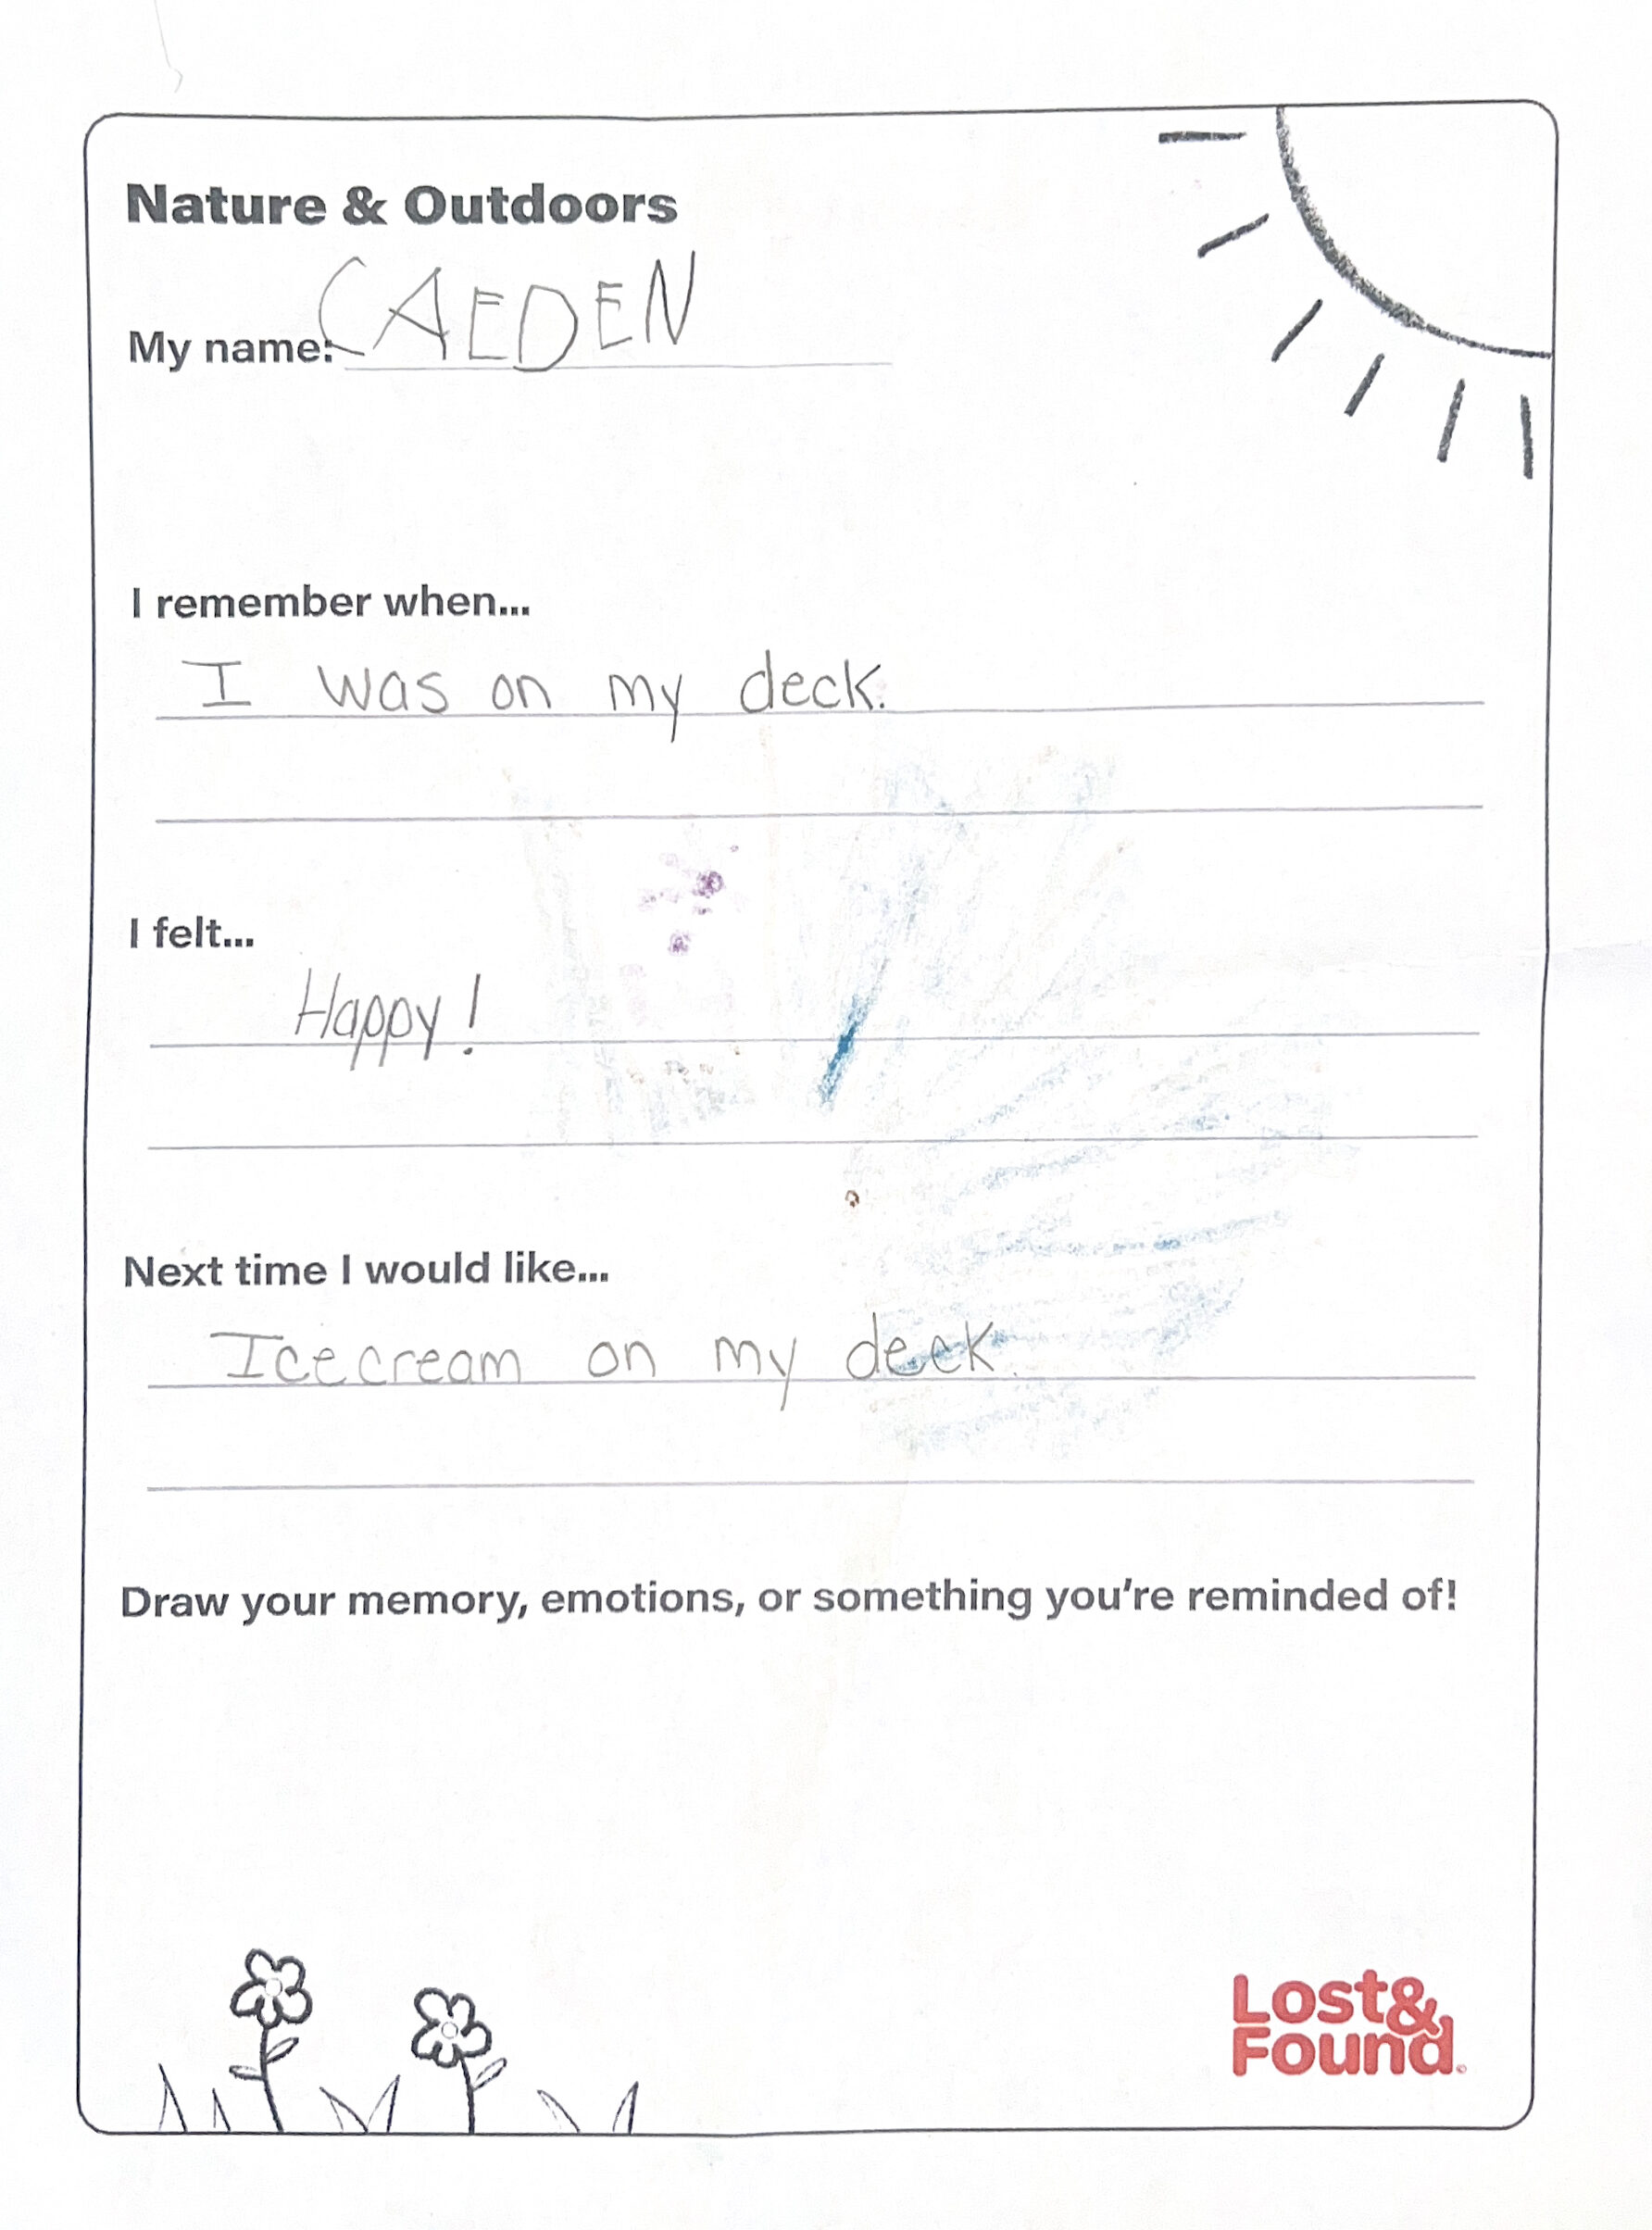 Nature & Outdoors
My name: CAEDEN
I remember when...
I was on my deck.
I felt...
Happy!
Next time I would like...
Icecream on my deck.
Draw your memory, emotions, or something you're reminded of!
Lost&
Found